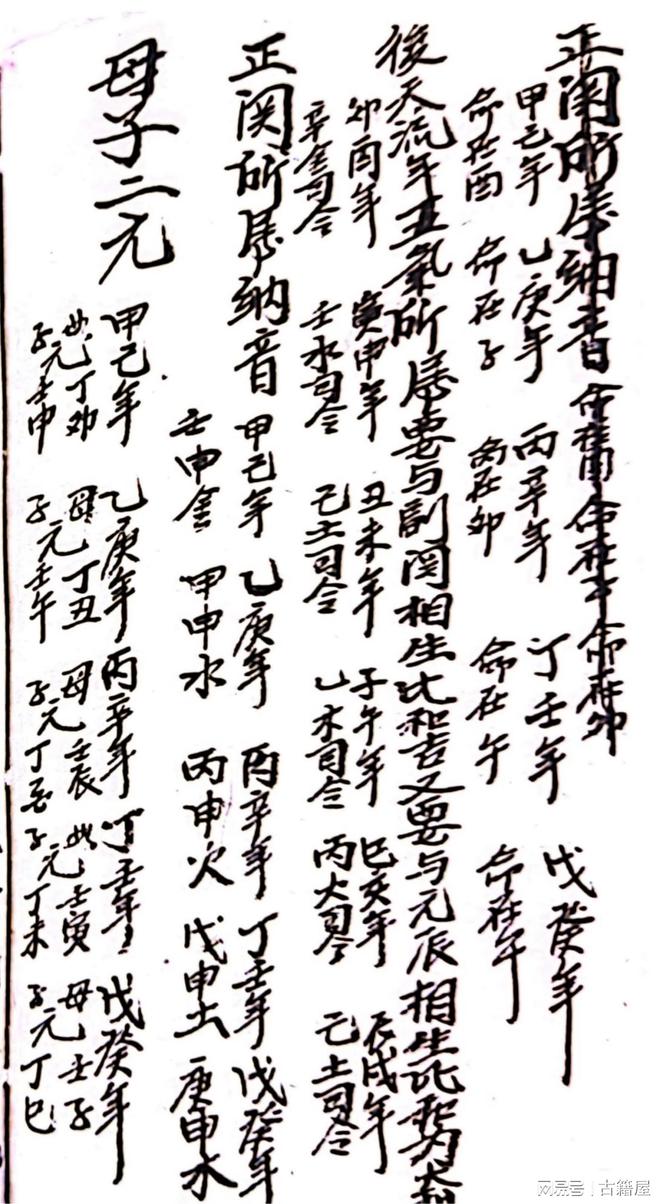 正関所属納音 命在酉 命在子 命在卯
甲己年 乙庚年 丙辛年 丁壬年 戊癸年
命在酉 命在子 命在卯 命在午 命在午
後天流年五氣所属要与副関相生比和吉又要与元辰相生比和为大利
卯酉年 寅申年 丑未年 子午年 巳亥年 辰戌年
辛金司令 壬水司令 己土司令 乙木司令 丙火司令 己土司令
正関所属納音
甲己年 乙庚年 丙辛年 丁壬年 戊癸年
壬申金 甲申水 丙申火 戊申土 庚申水
母子二元
甲己年 乙庚年 丙辛年 丁壬年 戊癸年
母元丁卯 母丁丑 母壬辰 母壬寅 母壬子
子元壬申 子元壬午 子元丁 子元丁未 子元丁巳
网易号 | 古籍屋